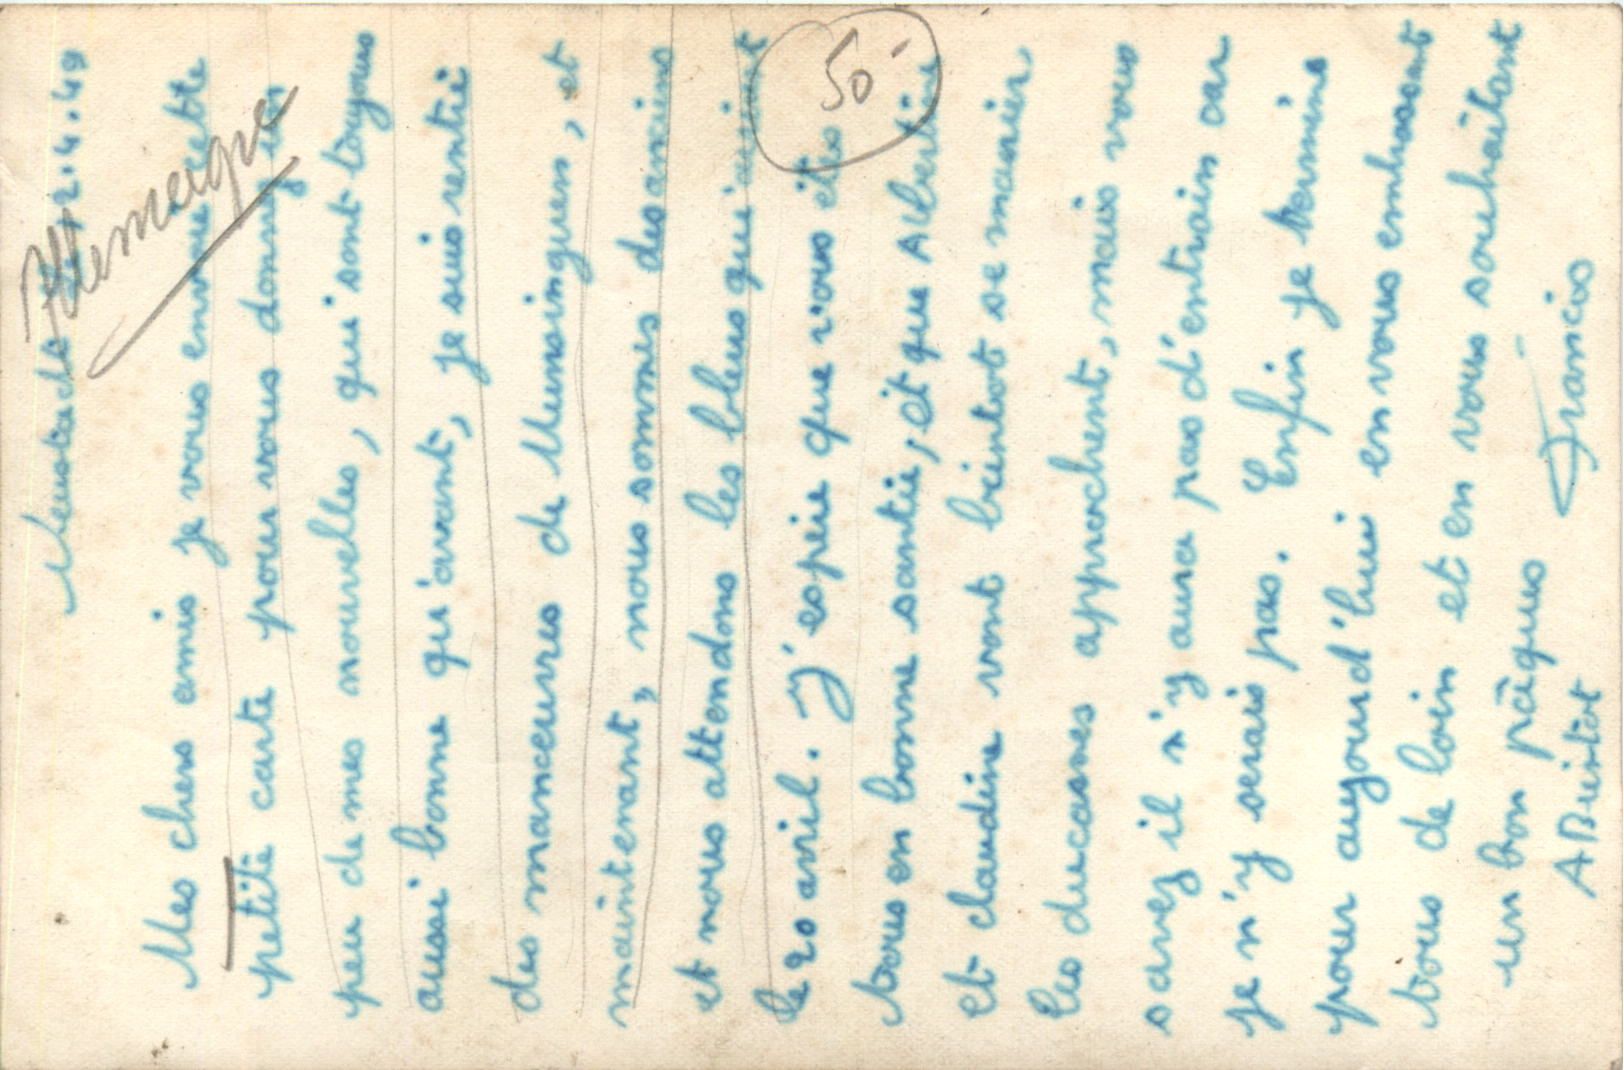 Neustadt le 12.4.49
Allemagne
50-
Mes chers amis je vous envoie cette
petite carte pour vous donnez un
peu de mes nouvelles, qui sont toujous
aussi bonne qu'avant, je suis rentré
des manœuvres de Munsinguen, et
maintenant, nous sommes des anciens
et nous attendons les bleus qui arrivent
le 20 avril. J'espère que vous êtes
tous en bonne santée, et que Albertine
et claudine vont bientot se marier,
les ducasses approchent, mais vous
savez il n'y aura pas d'entrain car
je n'y serais pas. Enfin je termine
pour aujourd'hui en vous embrassant
tous de loin et en vous souhaitant
un bon pâques
A Bientot Francis